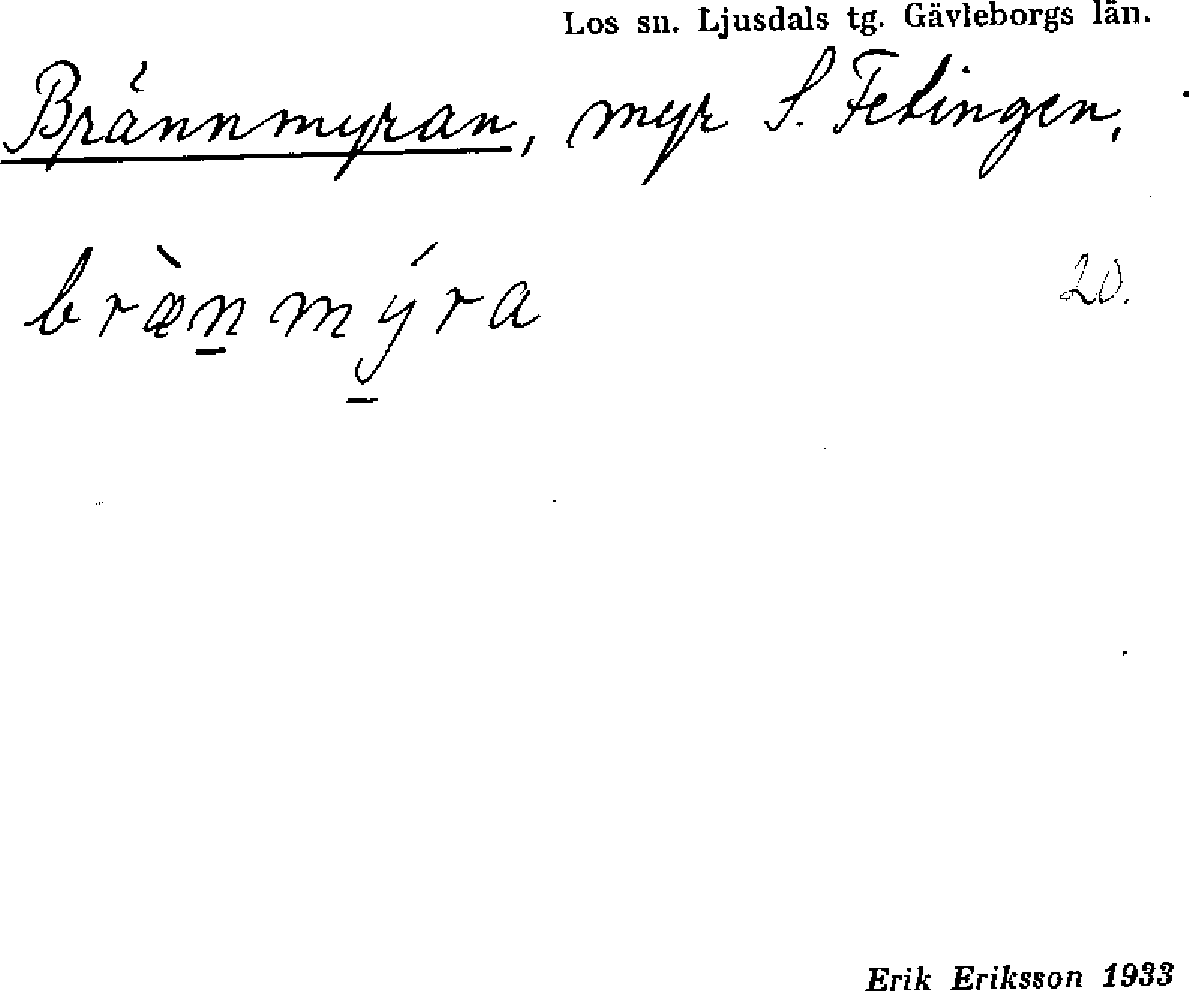 Los sn. Ljusdals tg. Gävleborgs län.
Brännmyran, myr S. Fetingen,
bræ̀n̲mý̲ra
20.
Erik Eriksson 1933